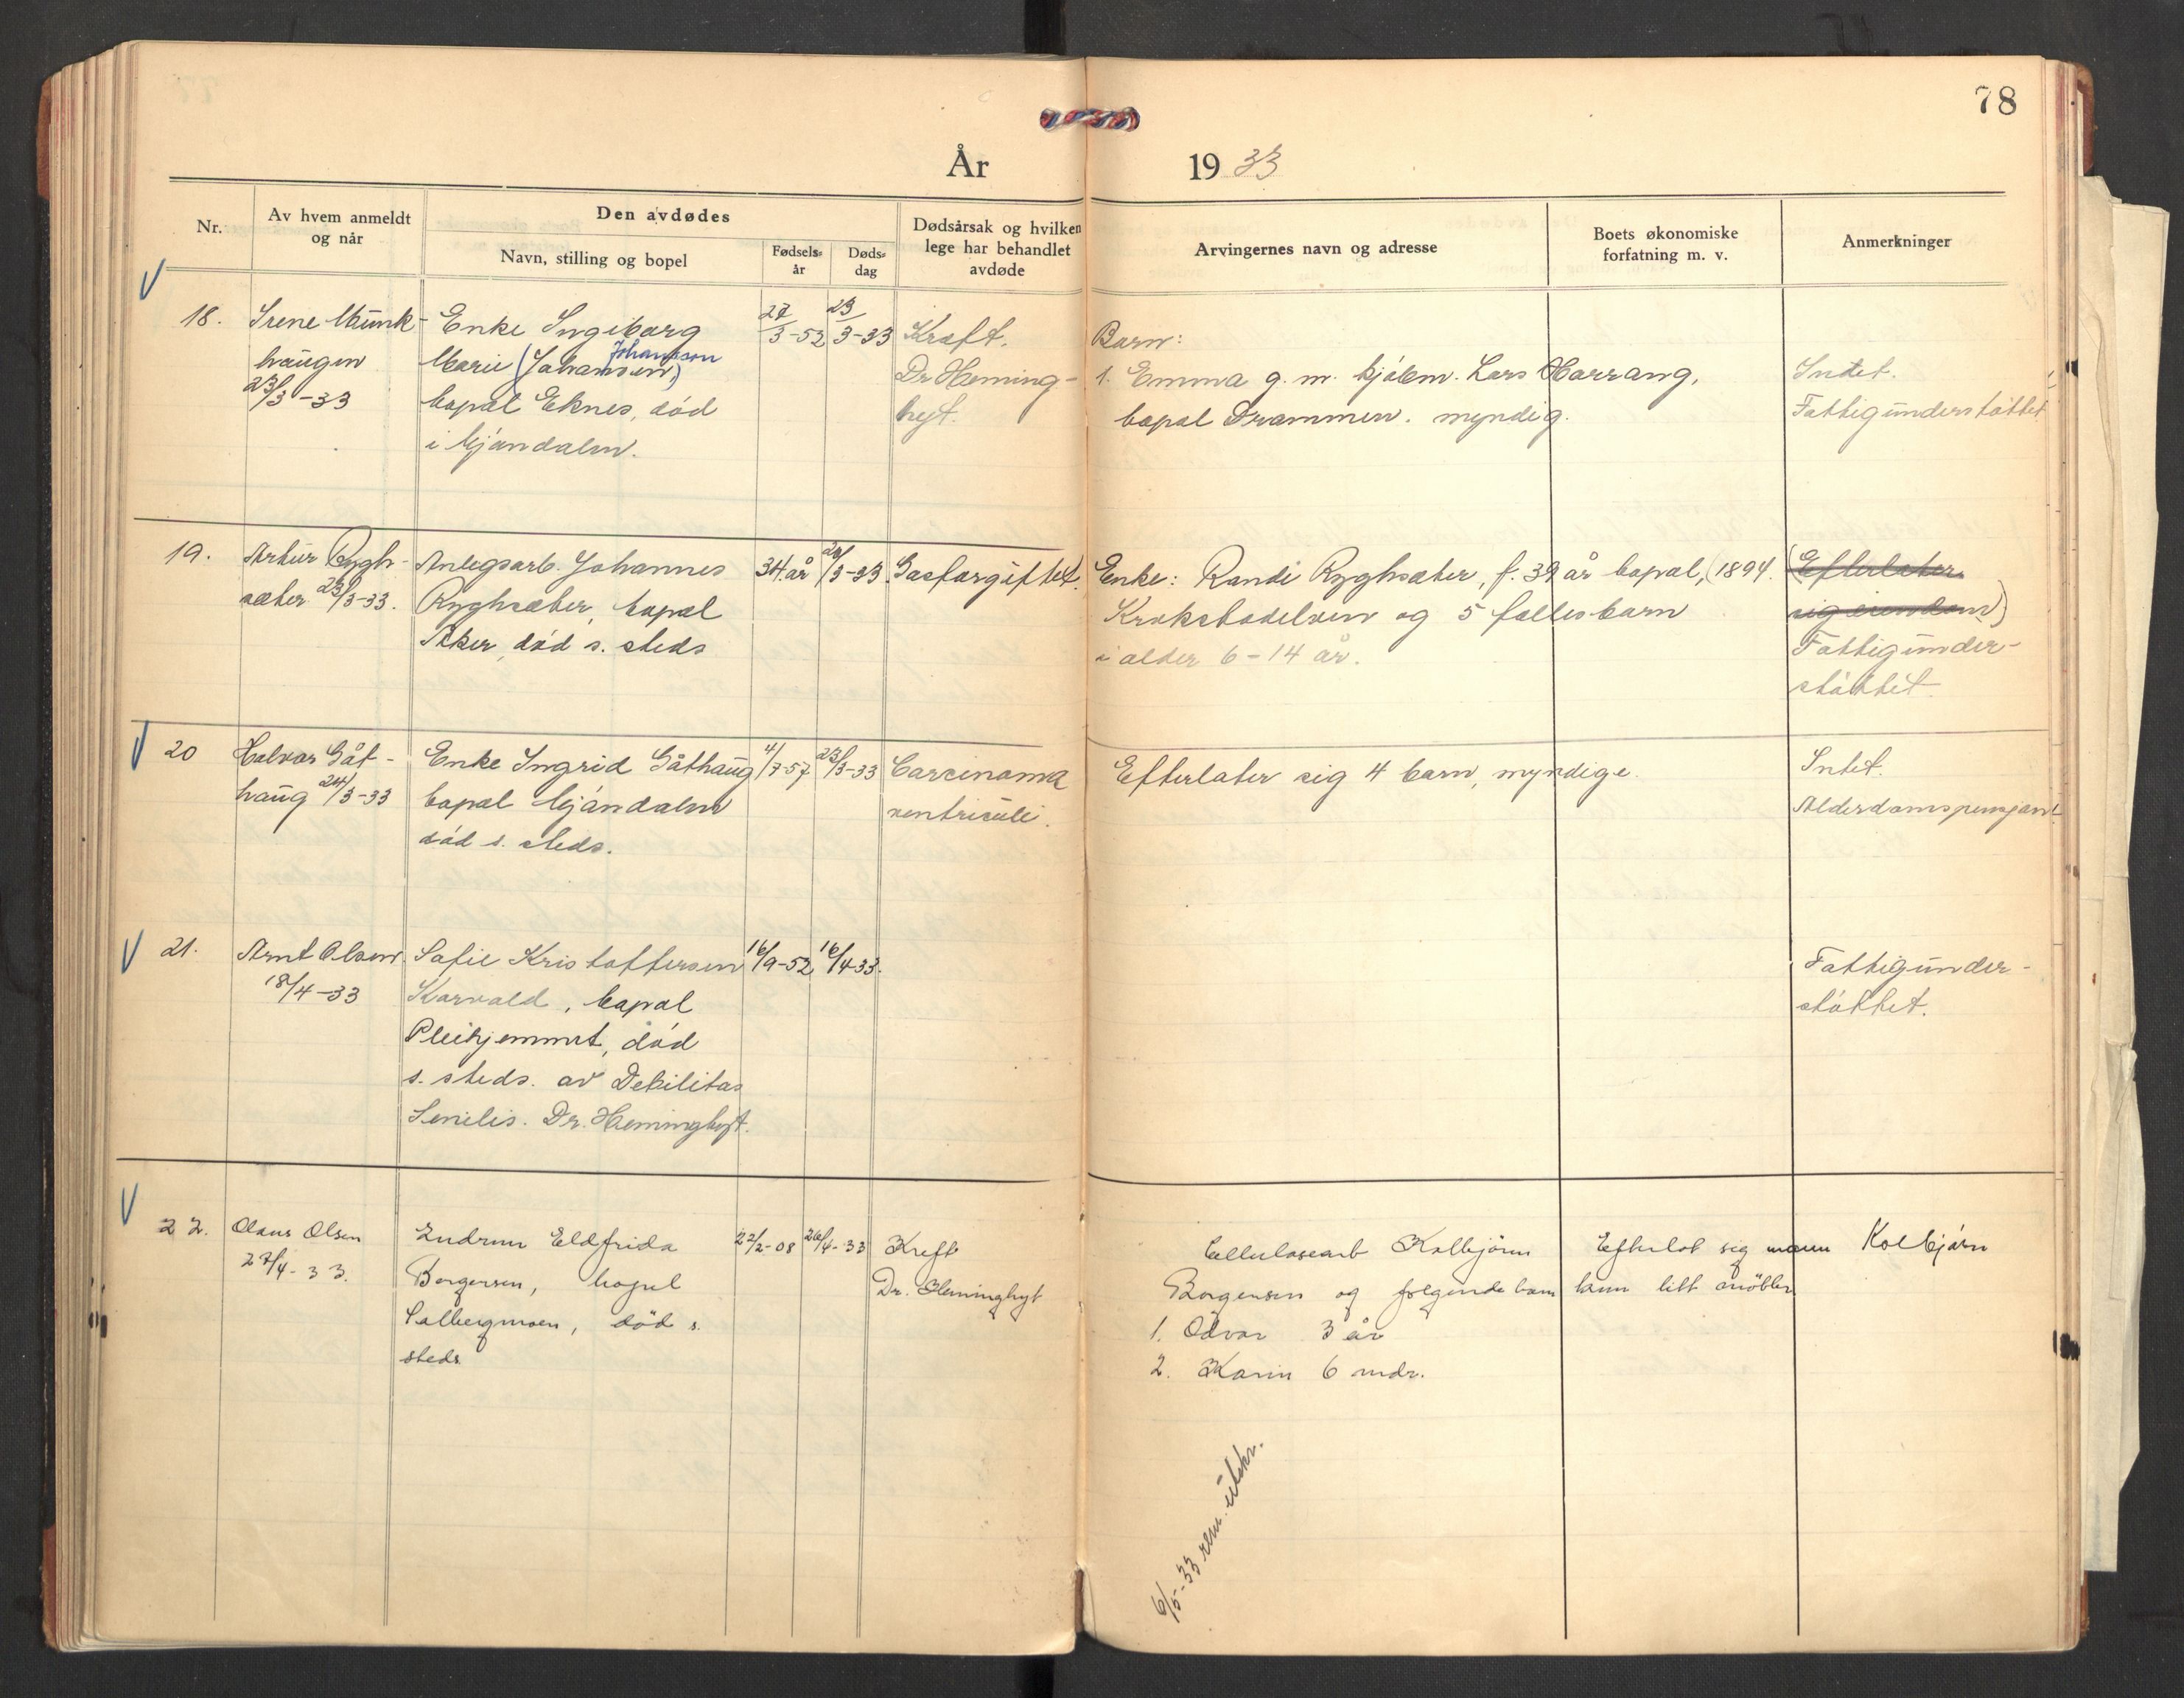 78
År 1933
Nr.
Av hvem anmeldt
og når
Den avdødes
Navn, stilling og bopel
Fødsels-
år
Døds-
dag
Dødsårsak og hvilken
lege har behandlet
avdøde
Arvingernes navn og adresse
Boets økonomiske
forfatning m. v.
Anmerkninger
18.
Irene Munk-
haugen
23/3-33
Enke Ingiborg
Marie (Johansen)
Johansson
bopæl Eknes, död
i Mjöndalen.
27/3-52
23/3-33
Kræft.
Dr Heming-
hyt.
Barn:
1. Emma g. m. kjölem. Lars Harrang,
bopæl Drammen. myndig.
Intet.
Fattigunderstöttet
19.
Artur Rygh-
sæter 29/3-33.
Anlegsarb. Johannes
Ryghsæter, bopæl
Aker, död s. steds
34. år
29/3-33
Gasforgiftet.
Enke: Randi Ryghsæter, f. 39 år bopæl, (1894.
Krokstadelven og 5 fællesbarn
i alder 6-14 år.
(Efterlater
sig eiendom)
Fattigunder-
stöttet.
20
Halvor Gåt-
haug 24/3-33
Enke Ingrid Gåthaug
bopæl Mjöndalen
död s. steds.
4/7-57
23/3-33
Carcinoma
ventriculi.
Efterlater sig 4 barn, myndige.
Intet.
Alderdomspensjont
21.
Arnt Olsen
18/4-33
Sofie Kristoffersen
Korvald, bopæl
Pleihjemmet, död
s. steds. av Debilitas
Senilis. Dr. Heminghyt.
16/9-52
16/4-33.
Fattigunder-
stöttet.
22.
Olaus Olsen
27/4-33.
Gudrun Eldfrida
Borgersen, bopel
Solbergmoen, död s.
steds
22/2-08
26/4-33
Kreft
Dr. Heminghyt
Cellulosearb Kolbjörn
Borgersen og folgende barn
1. Odvar 3 år
2. Karin 6 mdr.
Efterlot sig mann Kolbjörn
kun litt möbler
6/5-33 rem. utskr.